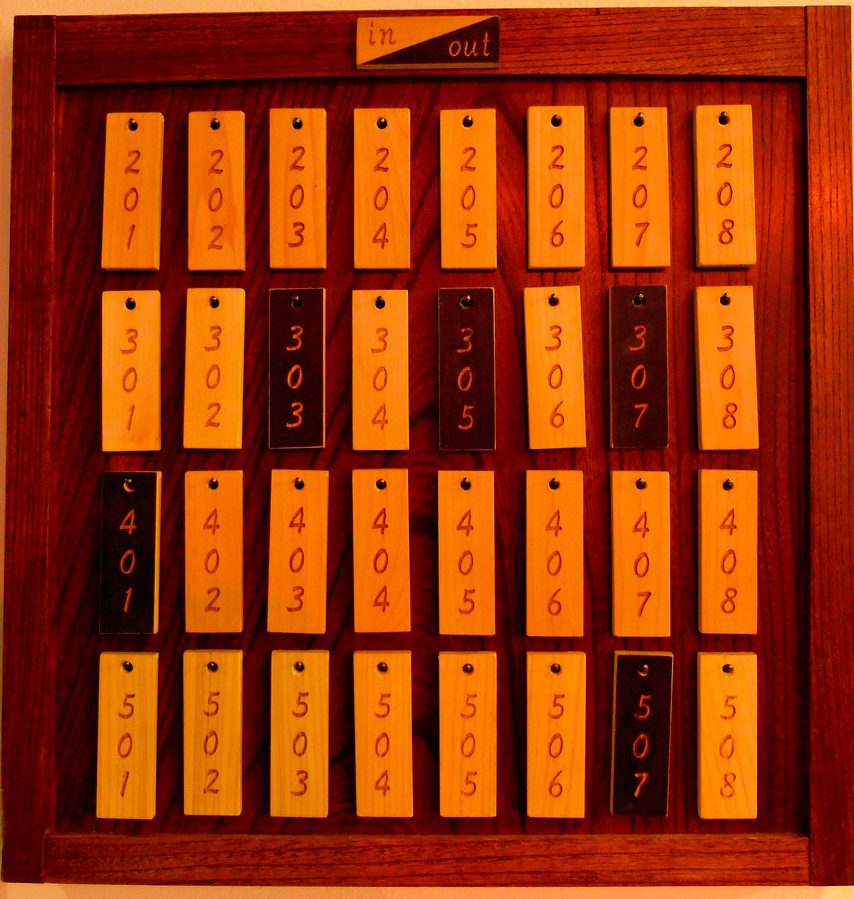 in out
201 202 203 204 205 206 207 208
301 302 303 304 305 306 307 308
401 402 403 404 405 406 407 408
501 502 503 504 505 506 507 508